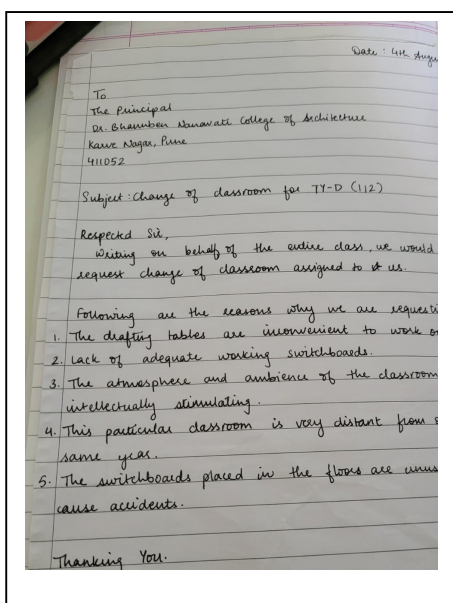 Date : 4th Augu
To
The Principal
Dr. Bhanuben Nanavati College of Architecture
Karve Nagar, Pune
411052
Subject : Change of classroom for TY-D (112)
Respected Sir,
Writing on behalf of the entire class, we would
request change of classroom assigned to us.
Following are the reasons why we are requesti
1. The drafting tables are inconvenient to work on
2. Lack of adequate working switchboards.
3. The atmosphere and ambience of the classroom
intellectually stimulating.
4. This particular classroom is very distant from
same year.
5. The switchboards placed in the floors are unus
cause accidents.
Thanking You.